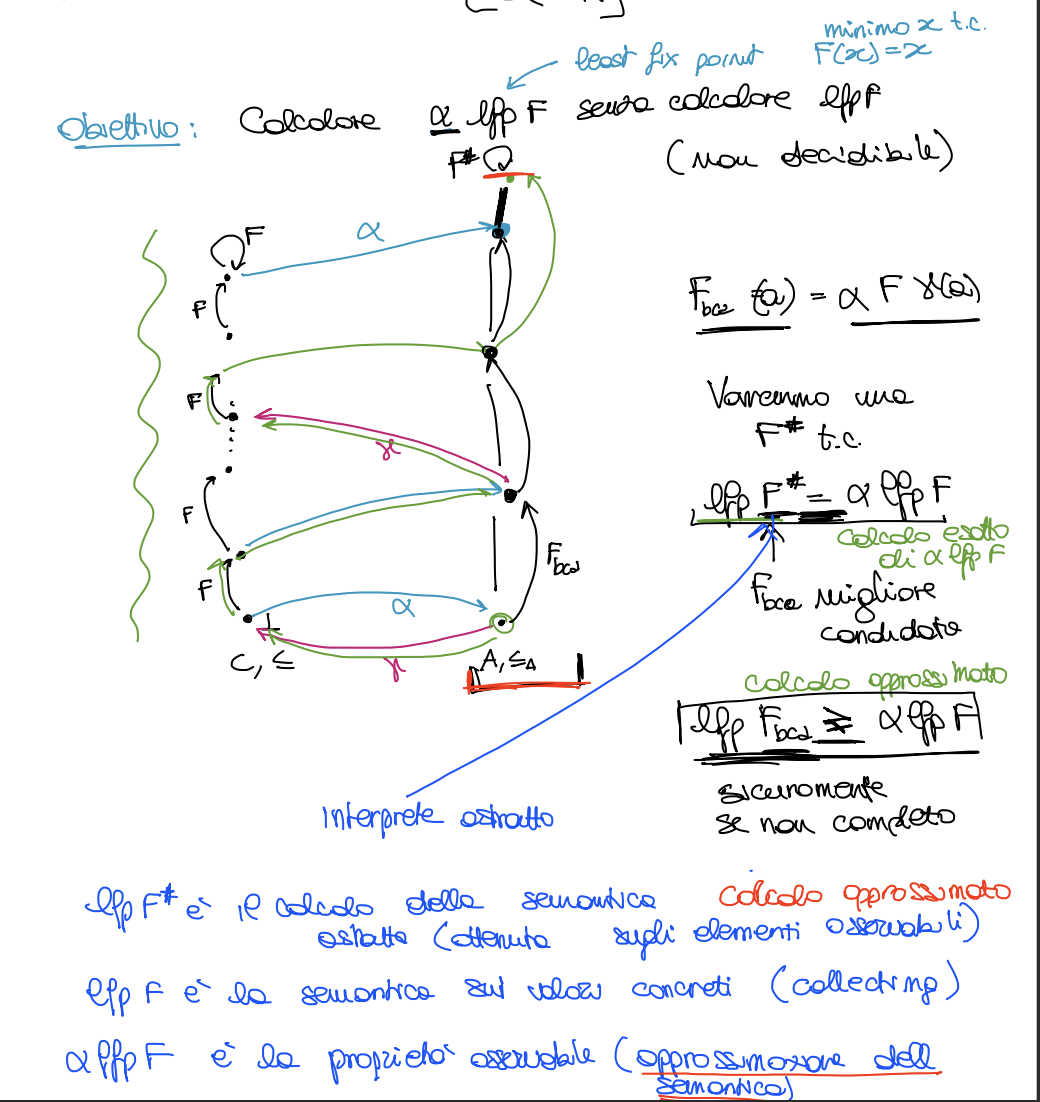 minimo x t.c.
least fix point F(x)=x
Obiettivo: Calcolare α lfp F senza calcolare lfp F
(non decidibile)
F#
F
α
F
F_bca (a) = α F γ(a)
F
Vorremmo una
F# t.c.
γ
lfp F# = α lfp F
F
calcolo esatto
di α lfp F
F_bca
F
F_bca migliore
candidato
α
⊥
C, ≤
γ
A, ≤A
calcolo approssimato
lfp F_bca ≥ α lfp F
sicuramente
se non completo
Interprete astratto
lfp F# è il calcolo della semantica calcolo approssimato
astratta (ottenuta sugli elementi osservabili)
lfp F è la semantica sui valori concreti (collecting)
α lfp F è la proprietà osservabile (approssimazione dell
semantica)